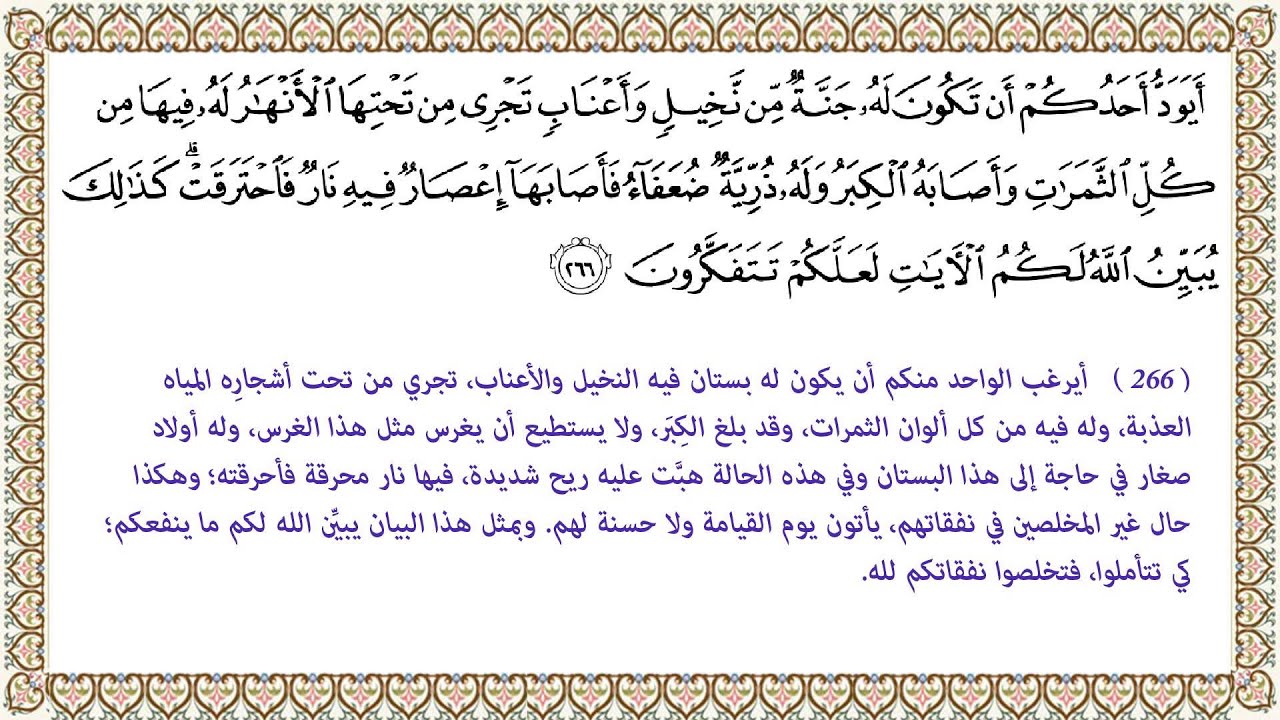 أَيَوَدُّ أَحَدُكُمْ أَن تَكُونَ لَهُۥ جَنَّةٌ مِّن نَّخِيلٍ وَأَعْنَابٍ تَجْرِى مِن تَحْتِهَا ٱلْأَنْهَٰرُ لَهُۥ فِيهَا مِن
كُلِّ ٱلثَّمَرَٰتِ وَأَصَابَهُ ٱلْكِبَرُ وَلَهُۥ ذُرِّيَّةٌ ضُعَفَآءُ فَأَصَابَهَآ إِعْصَارٌ فِيهِ نَارٌ فَٱحْتَرَقَتْ ۗ كَذَٰلِكَ
يُبَيِّنُ ٱللَّهُ لَكُمُ ٱلْأَيَٰتِ لَعَلَّكُمْ تَتَفَكَّرُونَ ٢٦٦
( 266 ) أيرغب الواحد منكم أن يكون له بستان فيه النخيل والأعناب، تجري من تحت أشجارِه المياه
العذبة، وله فيه من كل ألوان الثمرات، وقد بلغ الكِبَر، ولا يستطيع أن يغرس مثل هذا الغرس، وله أولاد
صغار في حاجة إلى هذا البستان وفي هذه الحالة هبَّت عليه ريح شديدة، فيها نار محرقة فأحرقته؛ وهكذا
حال غير المخلصين في نفقاتهم، يأتون يوم القيامة ولا حسنة لهم. وبمثل هذا البيان يبيِّن الله لكم ما ينفعكم؛
كي تتأملوا، فتخلصوا نفقاتكم لله.